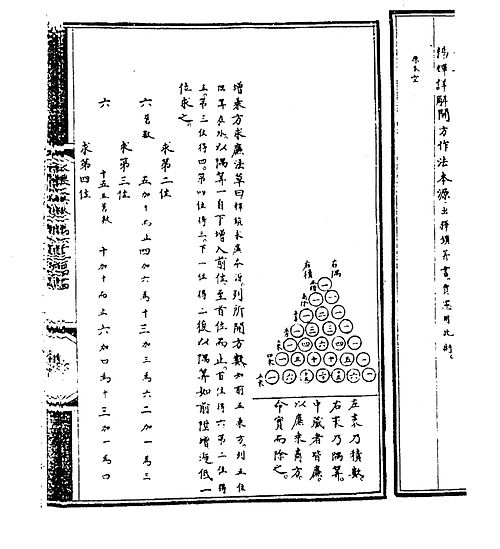 楊輝詳解開方作法本源出釋鎖算書。賈憲用此術。
右隅
右積
一
一一
一二一
一三三一
一四六四一
一五十十五一
一六十五二十十五六一
左袤乃積數。
右袤乃隅算。
中藏者皆廉。
以廉乘商方。
命實而除之。
增乘方求廉法草曰釋鎖求廉本源。列所開方數如前五乘方。列五位
隅算在外。以隅算一自下增入前位至首位而止。首位得六第二位得
五。第三位得四。第四位得三。下一位得二復以隅算如前陞增遞低一
位求之。
求第二位
六舊數 五加十而止四加六為十三加三為六二加一為三
求第三位
六 十五並舊數 十加十而止六加四為十三加一為四
求第四位